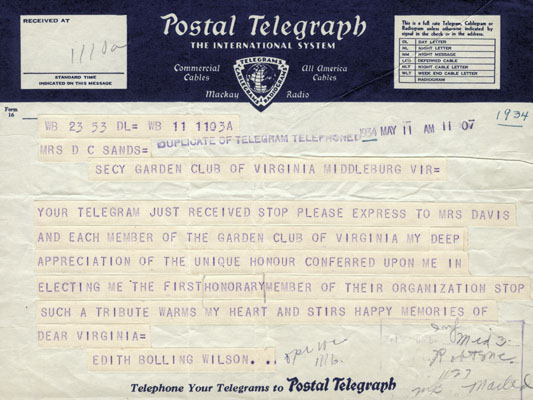 RECEIVED AT
1110a
STANDARD TIME
INDICATED ON THIS MESSAGE
Postal Telegraph
THE INTERNATIONAL SYSTEM
Commercial Cables
All America Cables
Mackay Radio
TELEGRAMS
This is a full rate Telegram, Cablegram or Radiogram unless otherwise indicated by signal in the check or in the address.
DL DAY LETTER
NL NIGHT LETTER
NM NIGHT MESSAGE
LCO DEFERRED CABLE
NLT NIGHT CABLE LETTER
WLT WEEK END CABLE LETTER
RADIOGRAM
Form
16
1934
WB 23 53 DL= WB 11 1103A
DUPLICATE OF TELEGRAM TELEPHONED 1934 MAY 11 AM 11 07
MRS D C SANDS=
SECY GARDEN CLUB OF VIRGINIA MIDDLEBURG VIR=
YOUR TELEGRAM JUST RECEIVED STOP PLEASE EXPRESS TO MRS DAVIS
AND EACH MEMBER OF THE GARDEN CLUB OF VIRGINIA MY DEEP
APPRECIATION OF THE UNIQUE HONOUR CONFERRED UPON ME IN
ELECTING ME THE FIRST HONORARY MEMBER OF THEIR ORGANIZATION STOP
SUCH A TRIBUTE WARMS MY HEART AND STIRS HAPPY MEMORIES OF
DEAR VIRGINIA=
EDITH BOLLING WILSON..
Mailed
Telephone Your Telegrams to Postal Telegraph